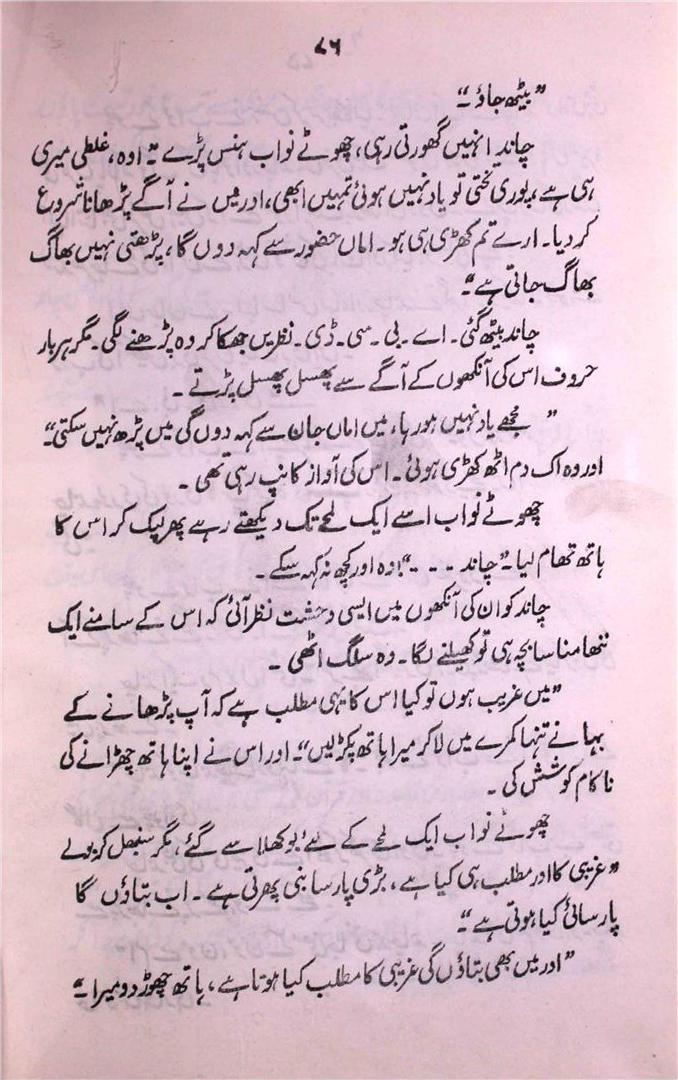 ۸۶
”بیٹھ جاؤ۔“
چاند انہیں گھورتی رہی، چھوٹے نواب ہنس پڑے۔ ”اوہ، غلطی میری
ہی ہے، پوری تختی تو یاد نہیں ہوئی تمہیں ابھی، اور میں نے آگے پڑھانا شروع
کر دیا۔ ارے تم کھڑی ہی ہو۔ اماں حضور سے کہہ دوں گا، پڑھتی نہیں بھاگ
بھاگ جاتی ہے۔“
چاند بیٹھ گئی۔ اے۔ بی۔ سی۔ ڈی۔ نظریں جھکا کر وہ پڑھنے لگی۔ مگر ہر بار
حروف اس کی آنکھوں کے آگے سے پھسل پھسل پڑتے۔
”مجھے یاد نہیں ہو رہا، میں اماں جان سے کہہ دوں گی میں پڑھ نہیں سکتی۔“
اور وہ اک دم اٹھ کھڑی ہوئی۔ اس کی آواز کانپ رہی تھی۔
چھوٹے نواب اسے ایک لمحے تک دیکھتے رہے پھر لپک کر اس کا
ہاتھ تھام لیا۔ ”چاند ۔ ۔ ۔ ۔“ وہ اور کچھ نہ کہہ سکے۔
چاند کو ان کی آنکھوں میں ایسی وحشت نظر آئی کہ اس کے سامنے ایک
ننھا منا سا بچہ ہی تو کھیلنے لگا۔ وہ سلگ اٹھی۔
”میں غریب ہوں تو کیا اس کا یہی مطلب ہے کہ آپ پڑھانے کے
بہانے تنہا کمرے میں لا کر میرا ہاتھ پکڑ لیں“۔ اور اس نے اپنا ہاتھ چھڑانے کی
ناکام کوشش کی۔
چھوٹے نواب ایک لمحے کے لئے بوکھلا سے گئے، مگر سنبھل کر بولے
”غریبی کا اور مطلب ہی کیا ہے، بڑی پارسا بنی پھرتی ہے۔ اب بتاؤں گا
پارسائی کیا ہوتی ہے۔“
”اور میں بھی بتاؤں گی غریبی کا مطلب کیا ہوتا ہے، ہاتھ چھوڑ دو میرا۔“